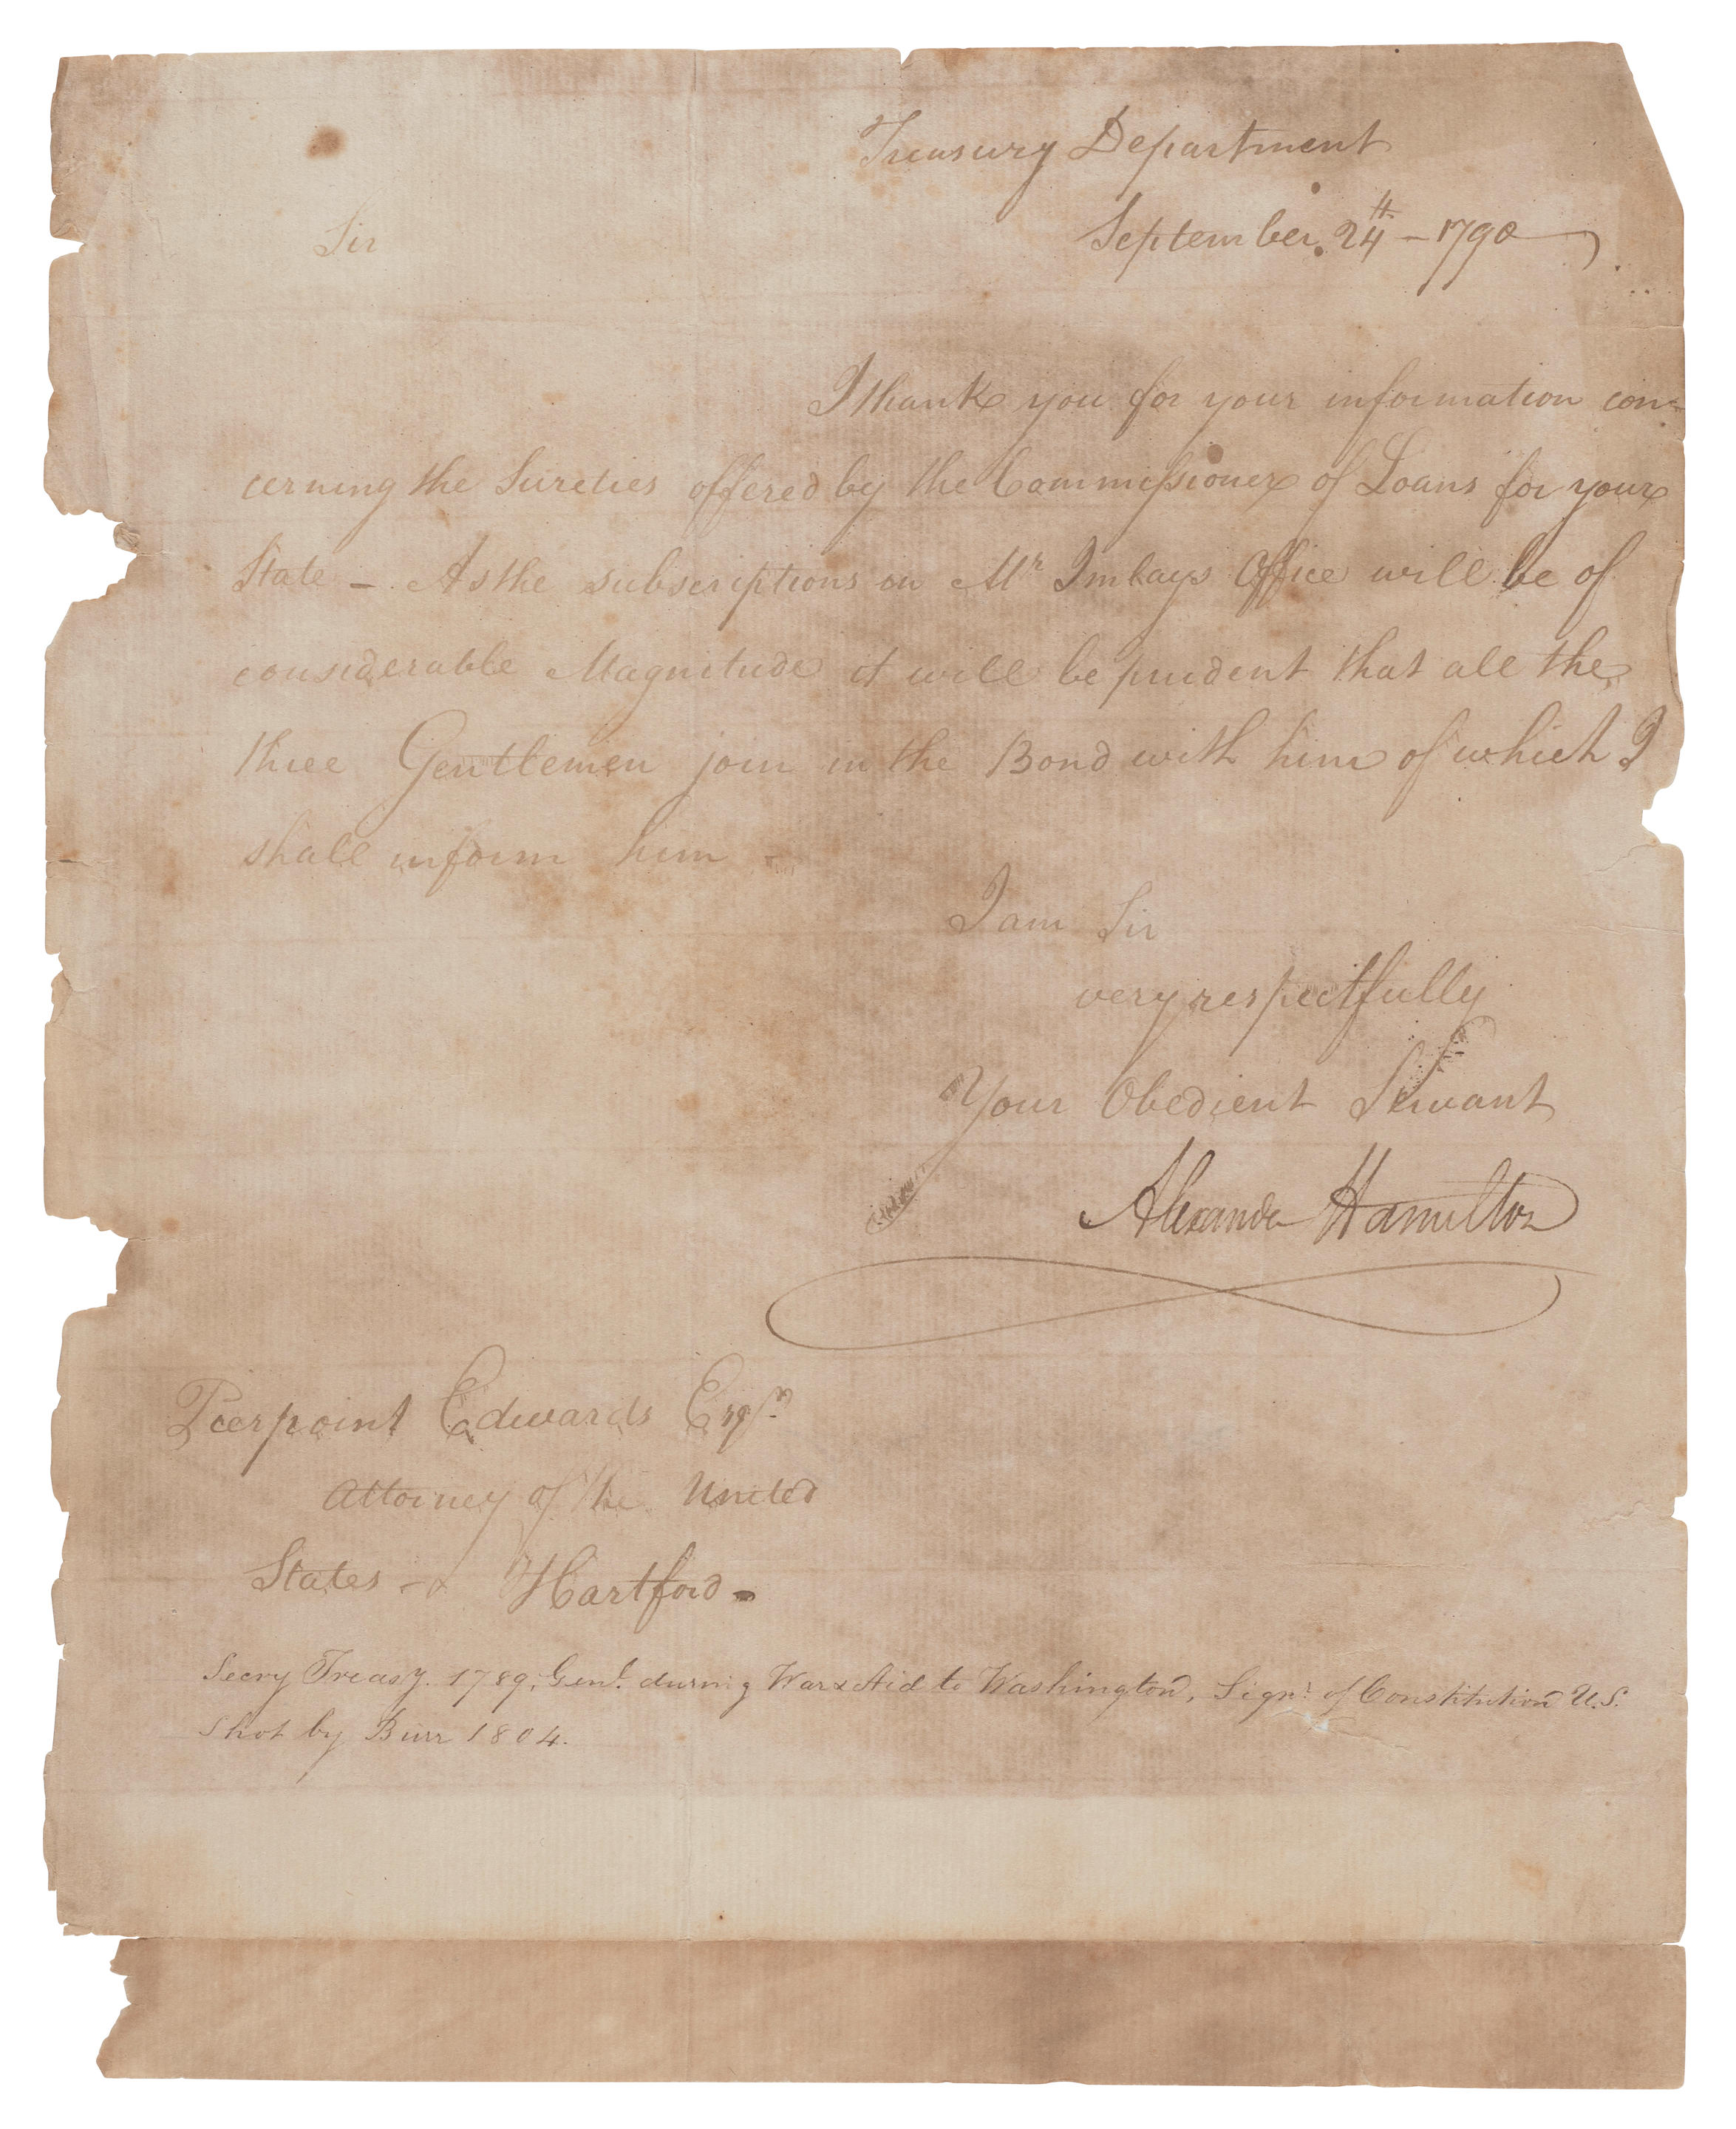 Treasury Department
September. 24th - 1790
Sir
I thank you for your information con=
cerning the Sureties offered by the Commissioner of Loans for your
State - As the subscriptions in Mr Imlays Office will be of
considerable Magnitude it will be prudent that all the
three Gentlemen join in the Bond with him of which I
shall inform him -
I am Sir
very respectfully
Your Obedient Servant
Alexander Hamilton
Pierpoint Edwards Esqr
Attorney of the United
States - Hartford -
Secry Treasy. 1789, Genl. during War & Aid to Washington, Signr. of Constitution U.S.
Shot by Burr 1804.